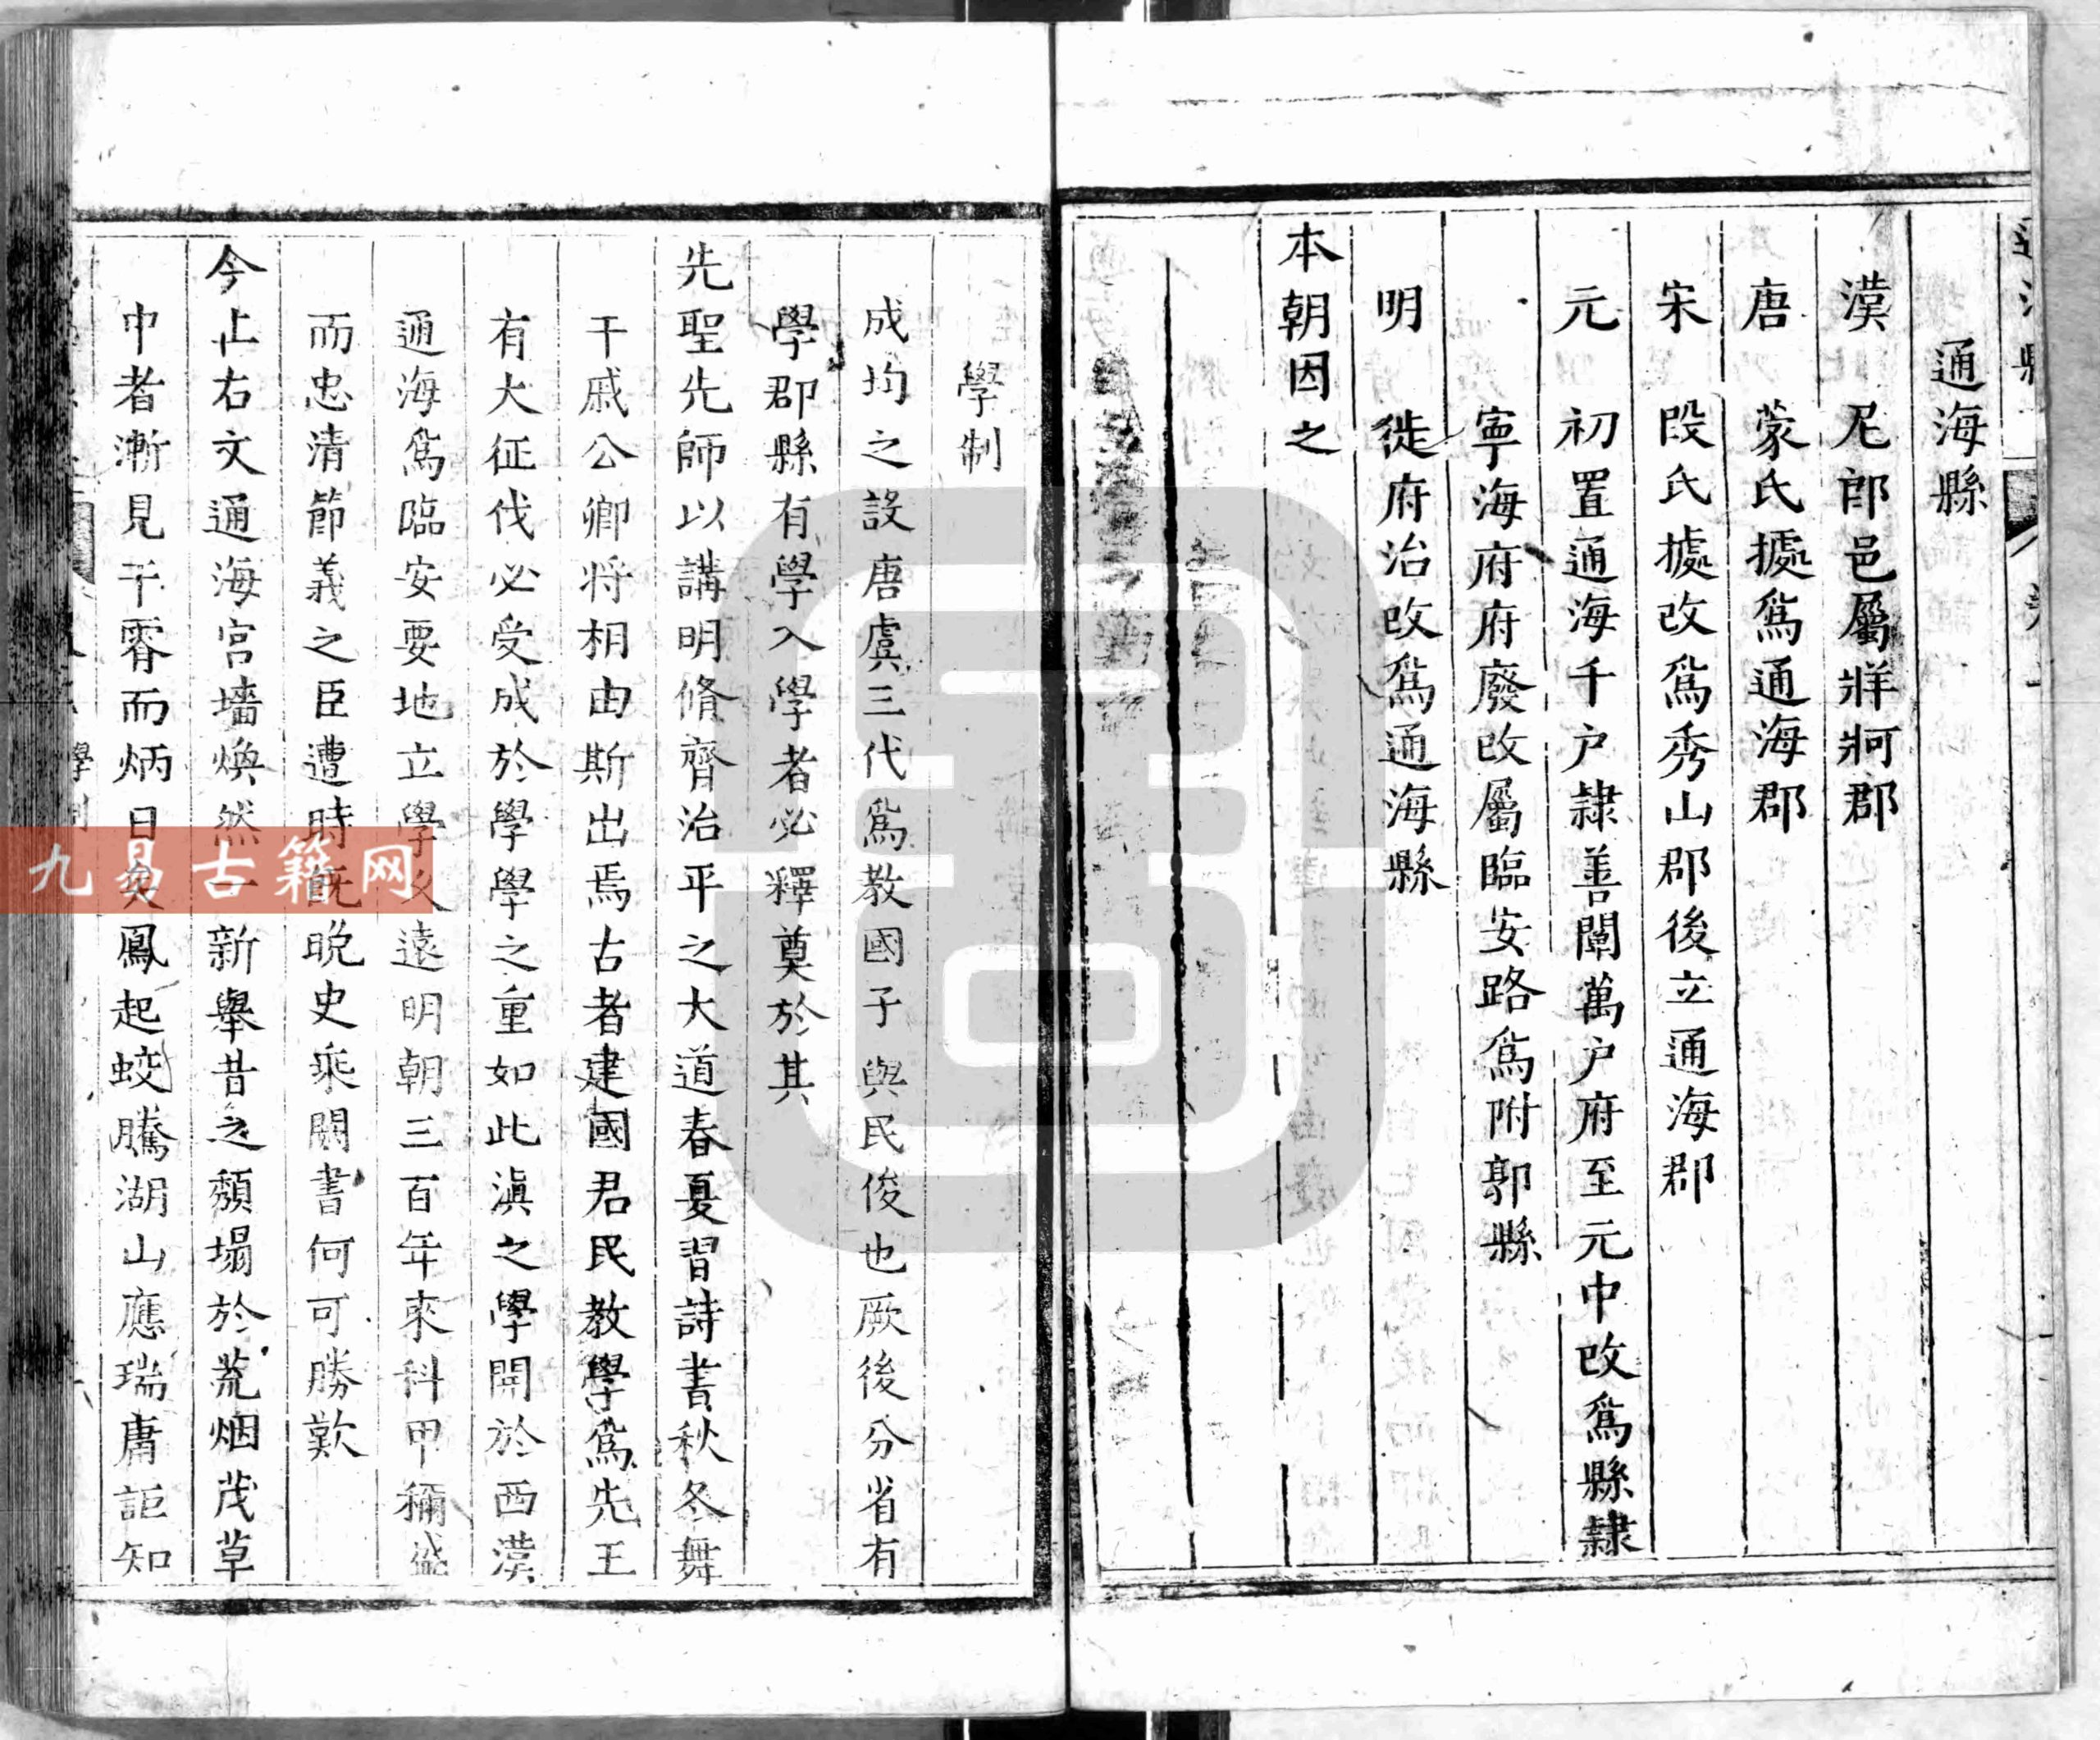 通海縣
漢　尼郎邑屬牂牁郡
唐　蒙氏㨿爲通海郡
宋　段氏㨿改爲秀山郡後立通海郡
元　初置通海千户隷善闡萬户府至元中改爲縣隷
寧海府府廢改屬臨安路爲附郭縣
明　徙府治改爲通海縣
本朝因之
學制
成均之設唐虞三代爲教國子與民俊也厥後分省有
學郡縣有學入學者必釋奠於其
先聖先師以講明脩齊治平之大道春夏習詩書秋冬舞
干戚公卿将相由斯出焉古者建國君民教學爲先王
有大征伐必受成於學學之重如此滇之學開於西漢
通海爲臨安要地立學久遠明朝三百年來科甲稱盛
而忠清節義之臣遭時旣晚史乘闕書何可勝歎
今上右文通海宮墻煥然一新舉昔之頽塌於荒烟茂草
中者漸見干霄而炳日矣鳳起蛟騰湖山應瑞庸詎知
學制
九易古籍网